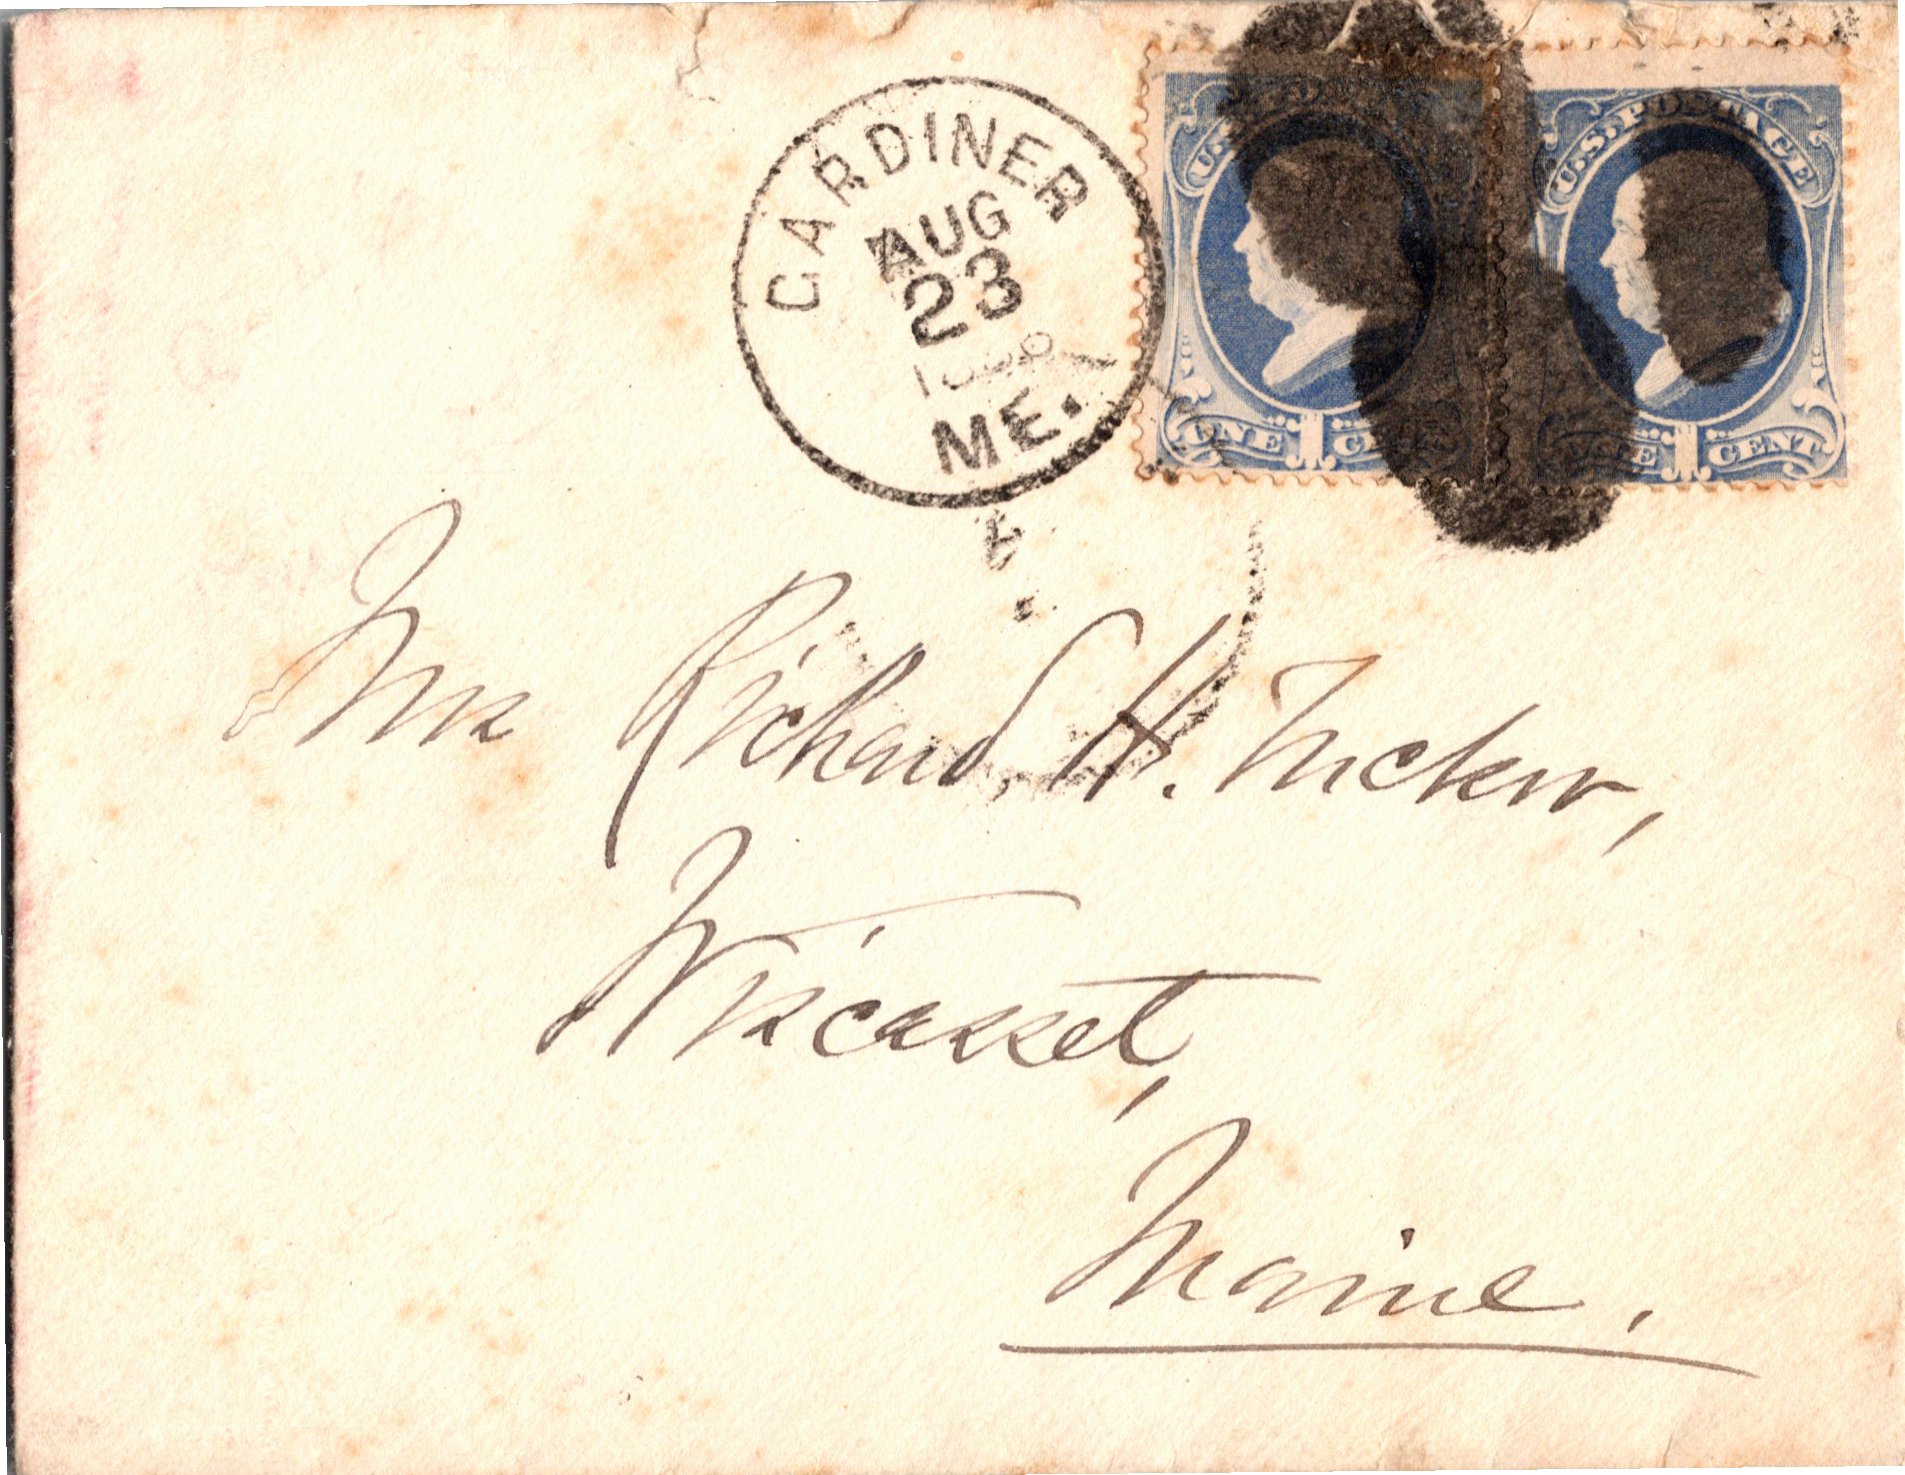 GARDINER
AUG
23
ME.
U.S. POSTAGE
ONE 1 CENT
U.S. POSTAGE
ONE 1 CENT
Mr Richard H. Tucker,
Wiscasset,
Maine.